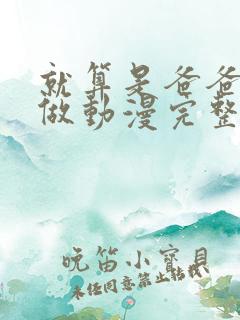 就算是爸爸
做動漫完整
晚笛小寶貝
未经同意禁止转载